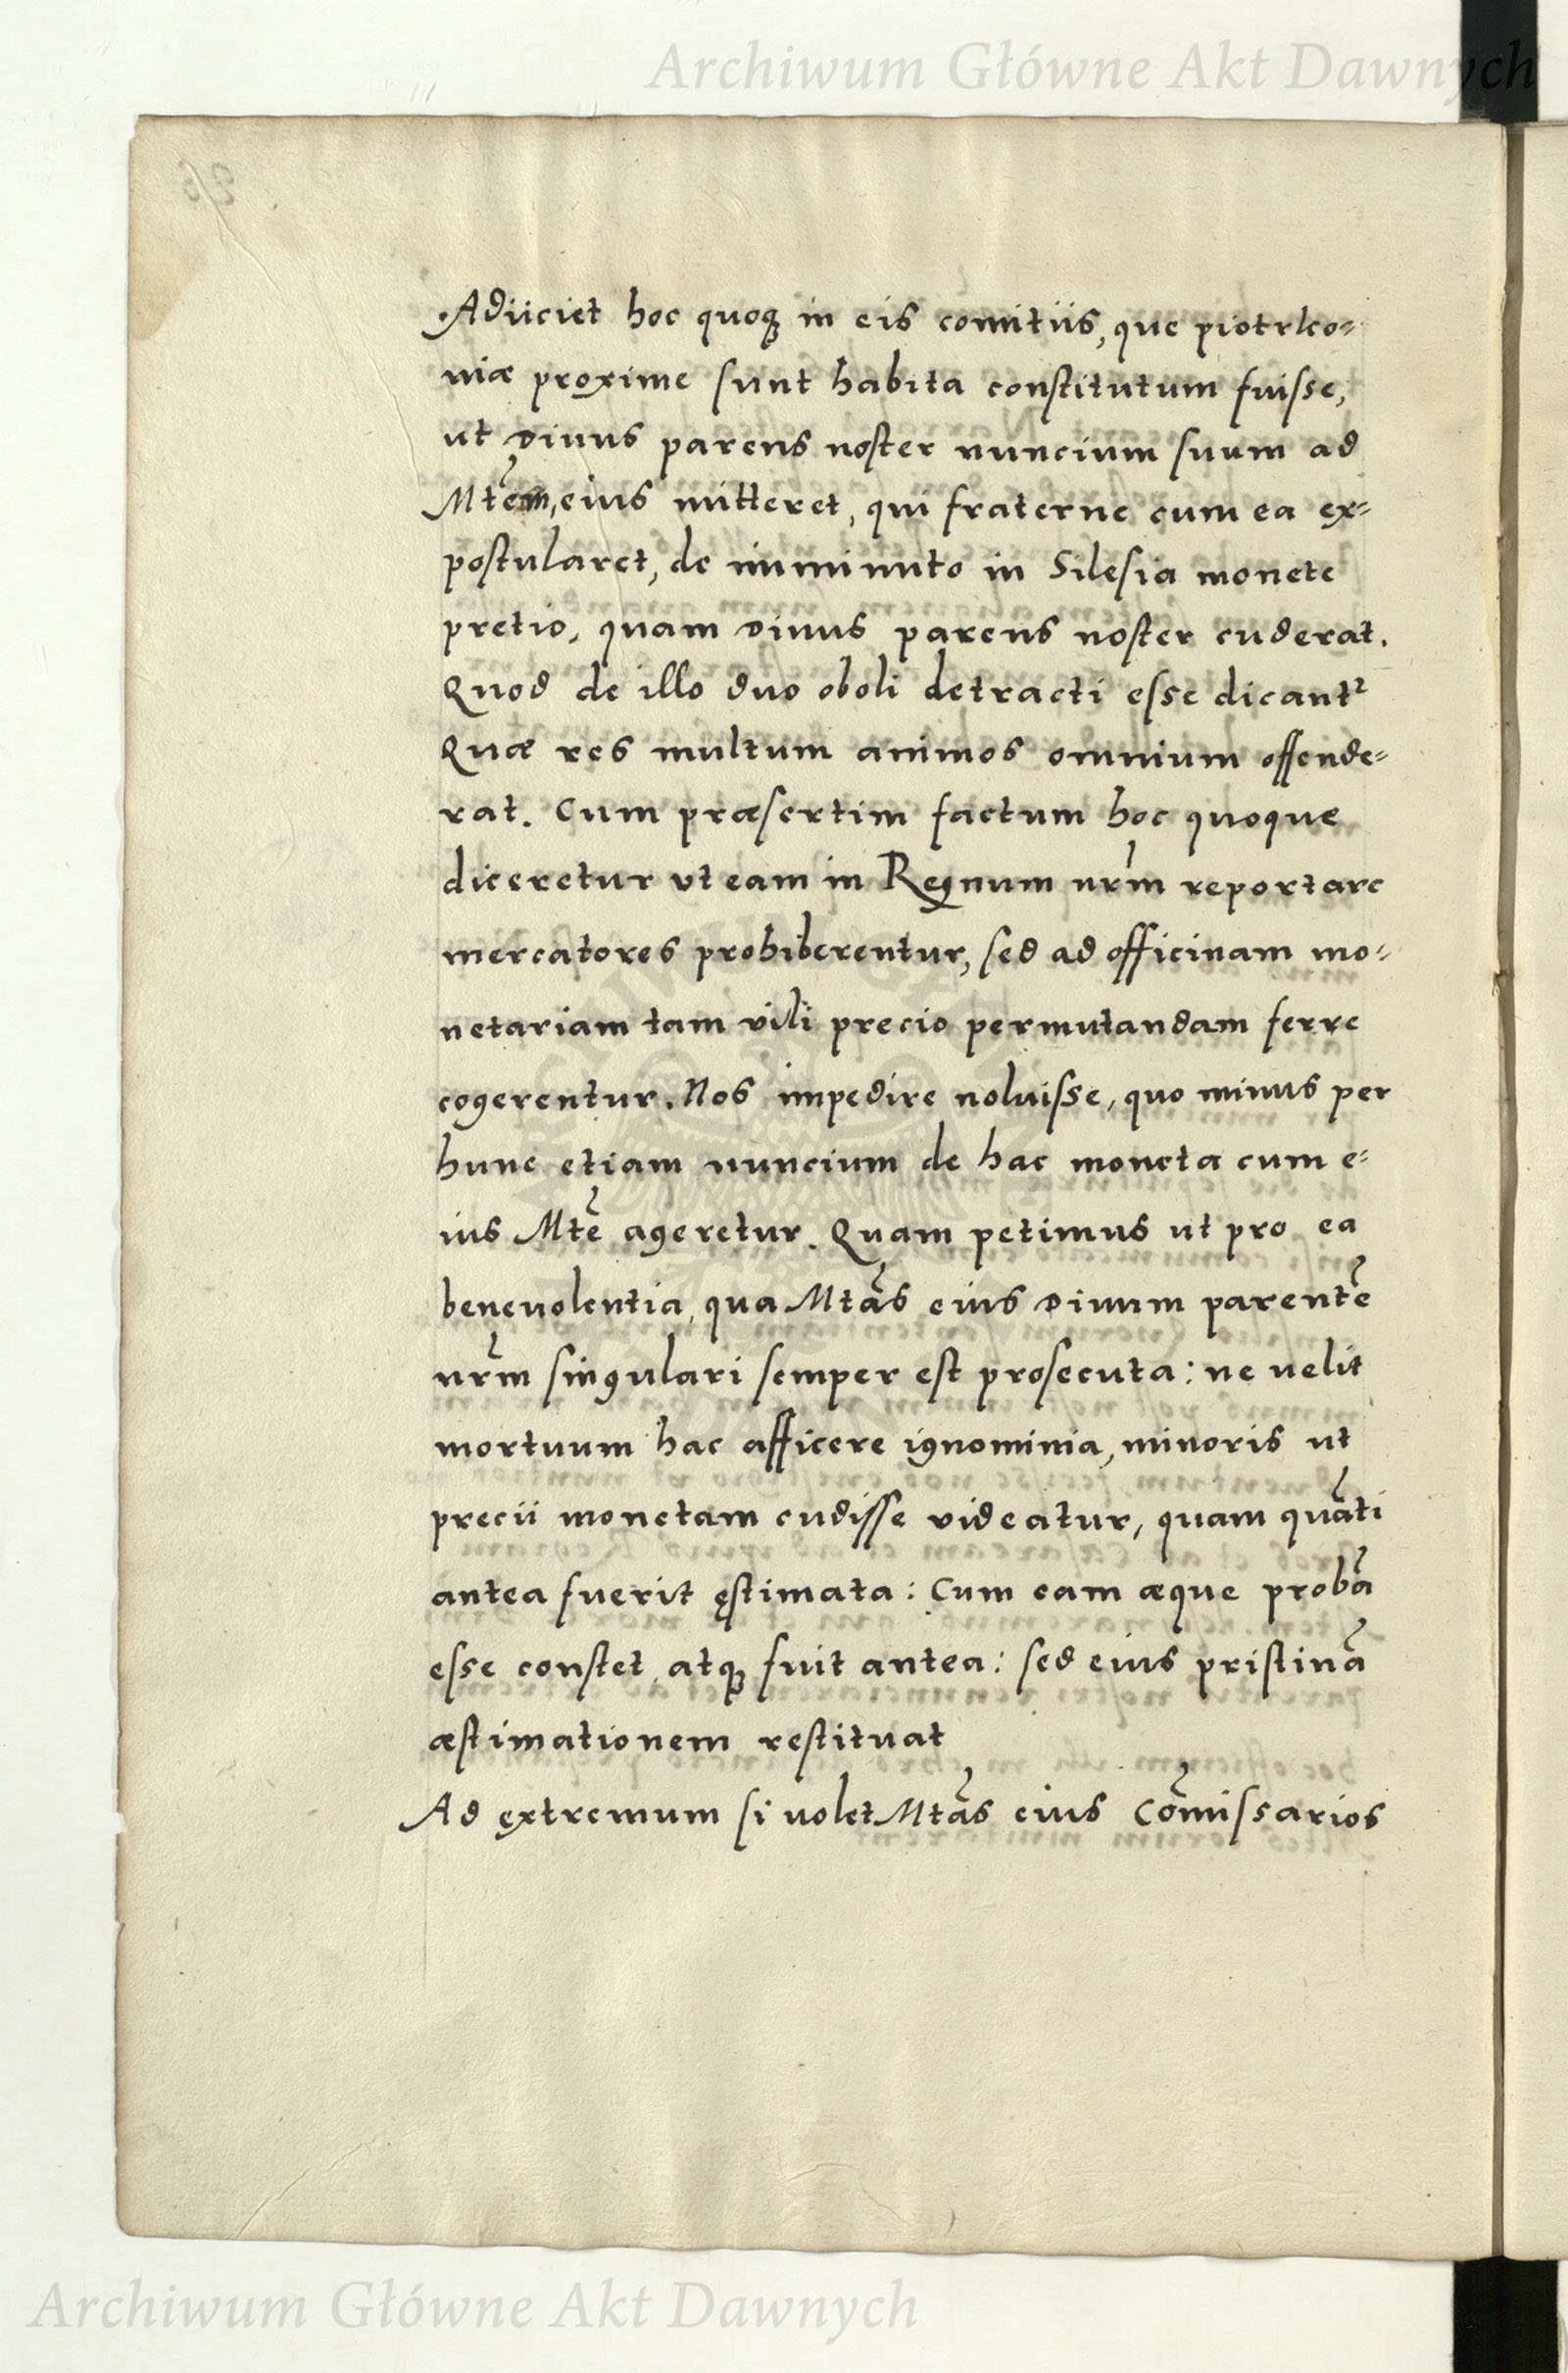 Archiwum Główne Akt Dawnych
Adiiciet hoc quoqꝫ in eis comitiis, que piotrko=
niæ proxime sunt habita constitutum fuisse,
ut Diuus parens noster nuncium suum ad
Mtẽm, eius mitteret, qui fraterne cum ea ex=
postularet, de imminuto in Silesia monete
pretio, quam Diuus parens noster cuderat.
Quod de illo duo oboli detracti esse dicantᷣ
Quæ res multum animos omnium offende=
rat. Cum præsertim factum hoc quoque
diceretur vt eam in Regnum nr̃m reportare
mercatores prohiberentur, sed ad officinam mo=
netariam tam vili precio permutandam ferre
cogerentur. Nos impedire noluisse, quo minus per
hunc etiam nuncium de hac moneta cum e=
ius Mtẽ ageretur. Quam petimus ut pro ea
beneuolentia, qua Mtãs eius Diuum parentẽ
nr̃m singulari semper est prosecuta: ne uelit
mortuum hac afficere ignominia, minoris ut
precii monetam cudisse videatur, quam quãti
antea fuerit ęstimata: Cum eam æque probã
esse constet, atqꝫ fuit antea: sed eius pristinã
æstimationem restituat
Ad extremum si uolet Mtãs eius Cõmissarios
Archiwum Główne Akt Dawnych